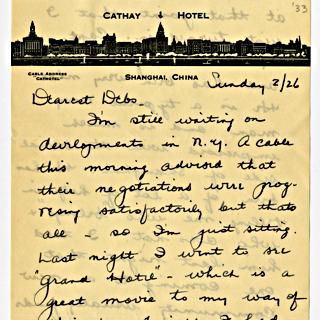 '33
CATHAY HOTEL
CABLE ADDRESS
CATHOTEL
SHANGHAI, CHINA
Sunday 2/26
Dearest Debs.
I'm still waiting on
developments in N.Y. A cable
this morning advised that
their negotiations were prog-
resing satisfactorily but thats
all - so I'm just sitting.
Last night I went to see
"Grand Hotel" - which is a
great movie to my way of